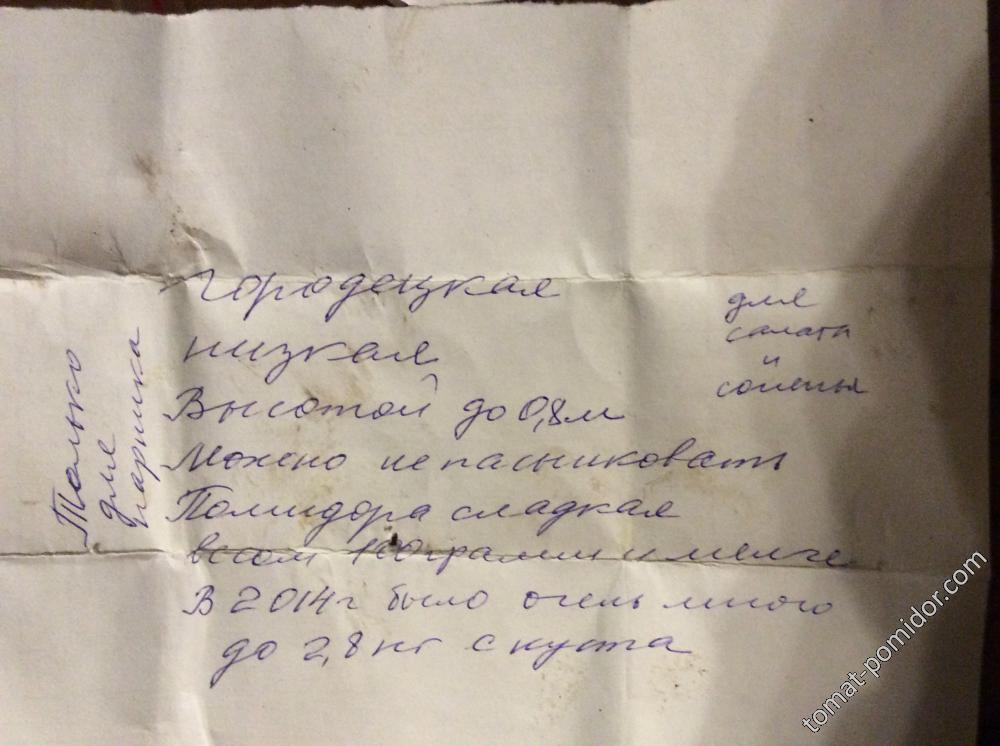 Только
для
парника
Городецкая
низкая
Высотой до 0,8м
Можно не пасынковать
Помидора сладкая
весом 100 грамм и мельче
В 2014г было очень много
до 2,8кг с куста
для
салата
и
соленья
tomat-pomidor.com